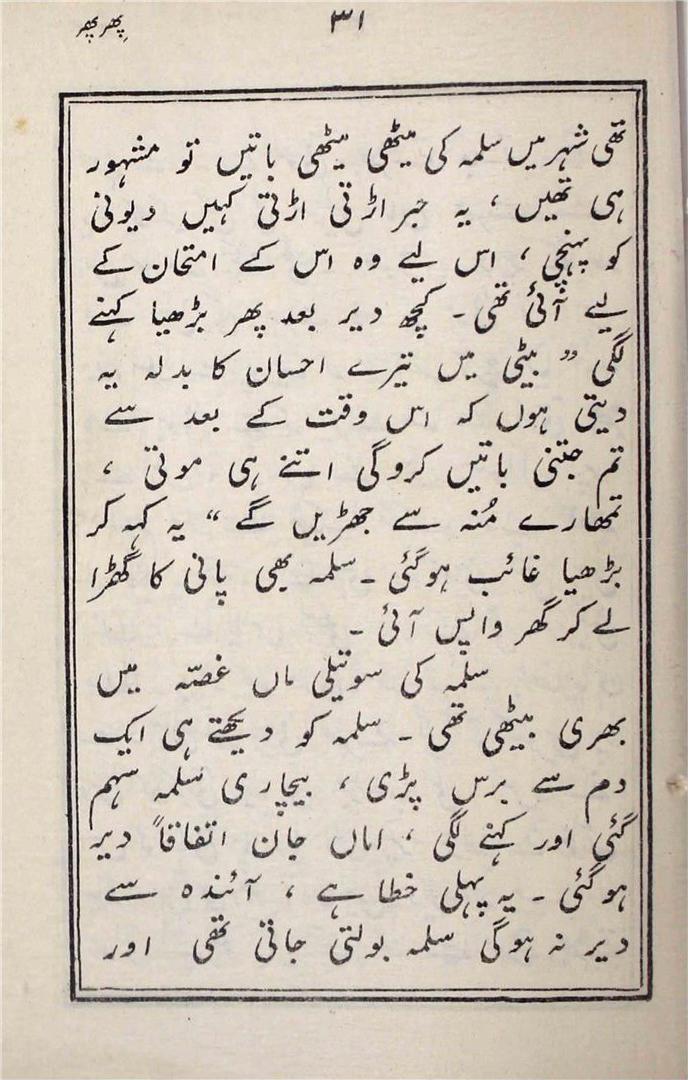 پھر پھر
۳۱
تھی شہر میں سلمہ کی میٹھی میٹھی باتیں تو مشہور
ہی تھیں ، یہ خبر اڑتی اڑتی کہیں دیونی
کو پہنچی ، اس لیے وہ اس کے امتحان کے
لیے آئی تھی ۔ کچھ دیر بعد پھر بڑھیا کہنے
لگی ” بیٹی میں تیرے احسان کا بدلہ یہ
دیتی ہوں کہ اس وقت کے بعد سے
تم جتنی باتیں کروگی اتنے ہی موتی ،
تمھارے مُنہ سے جھڑیں گے “ یہ کہہ کر
بڑھیا غائب ہوگئی ۔ سلمہ بھی پانی کا گھڑا
لے کر گھر واپس آئی ۔
سلمہ کی سوتیلی ماں غصّہ میں
بھری بیٹھی تھی ۔ سلمہ کو دیکھتے ہی ایک
دم سے برس پڑی ، بیچاری سلمہ سہم
گئی اور کہنے لگی ، اماں جان اتفاقاً دیر
ہوگئی ۔ یہ پہلی خطا ہے ، آئندہ سے
دیر نہ ہوگی سلمہ بولتی جاتی تھی اور